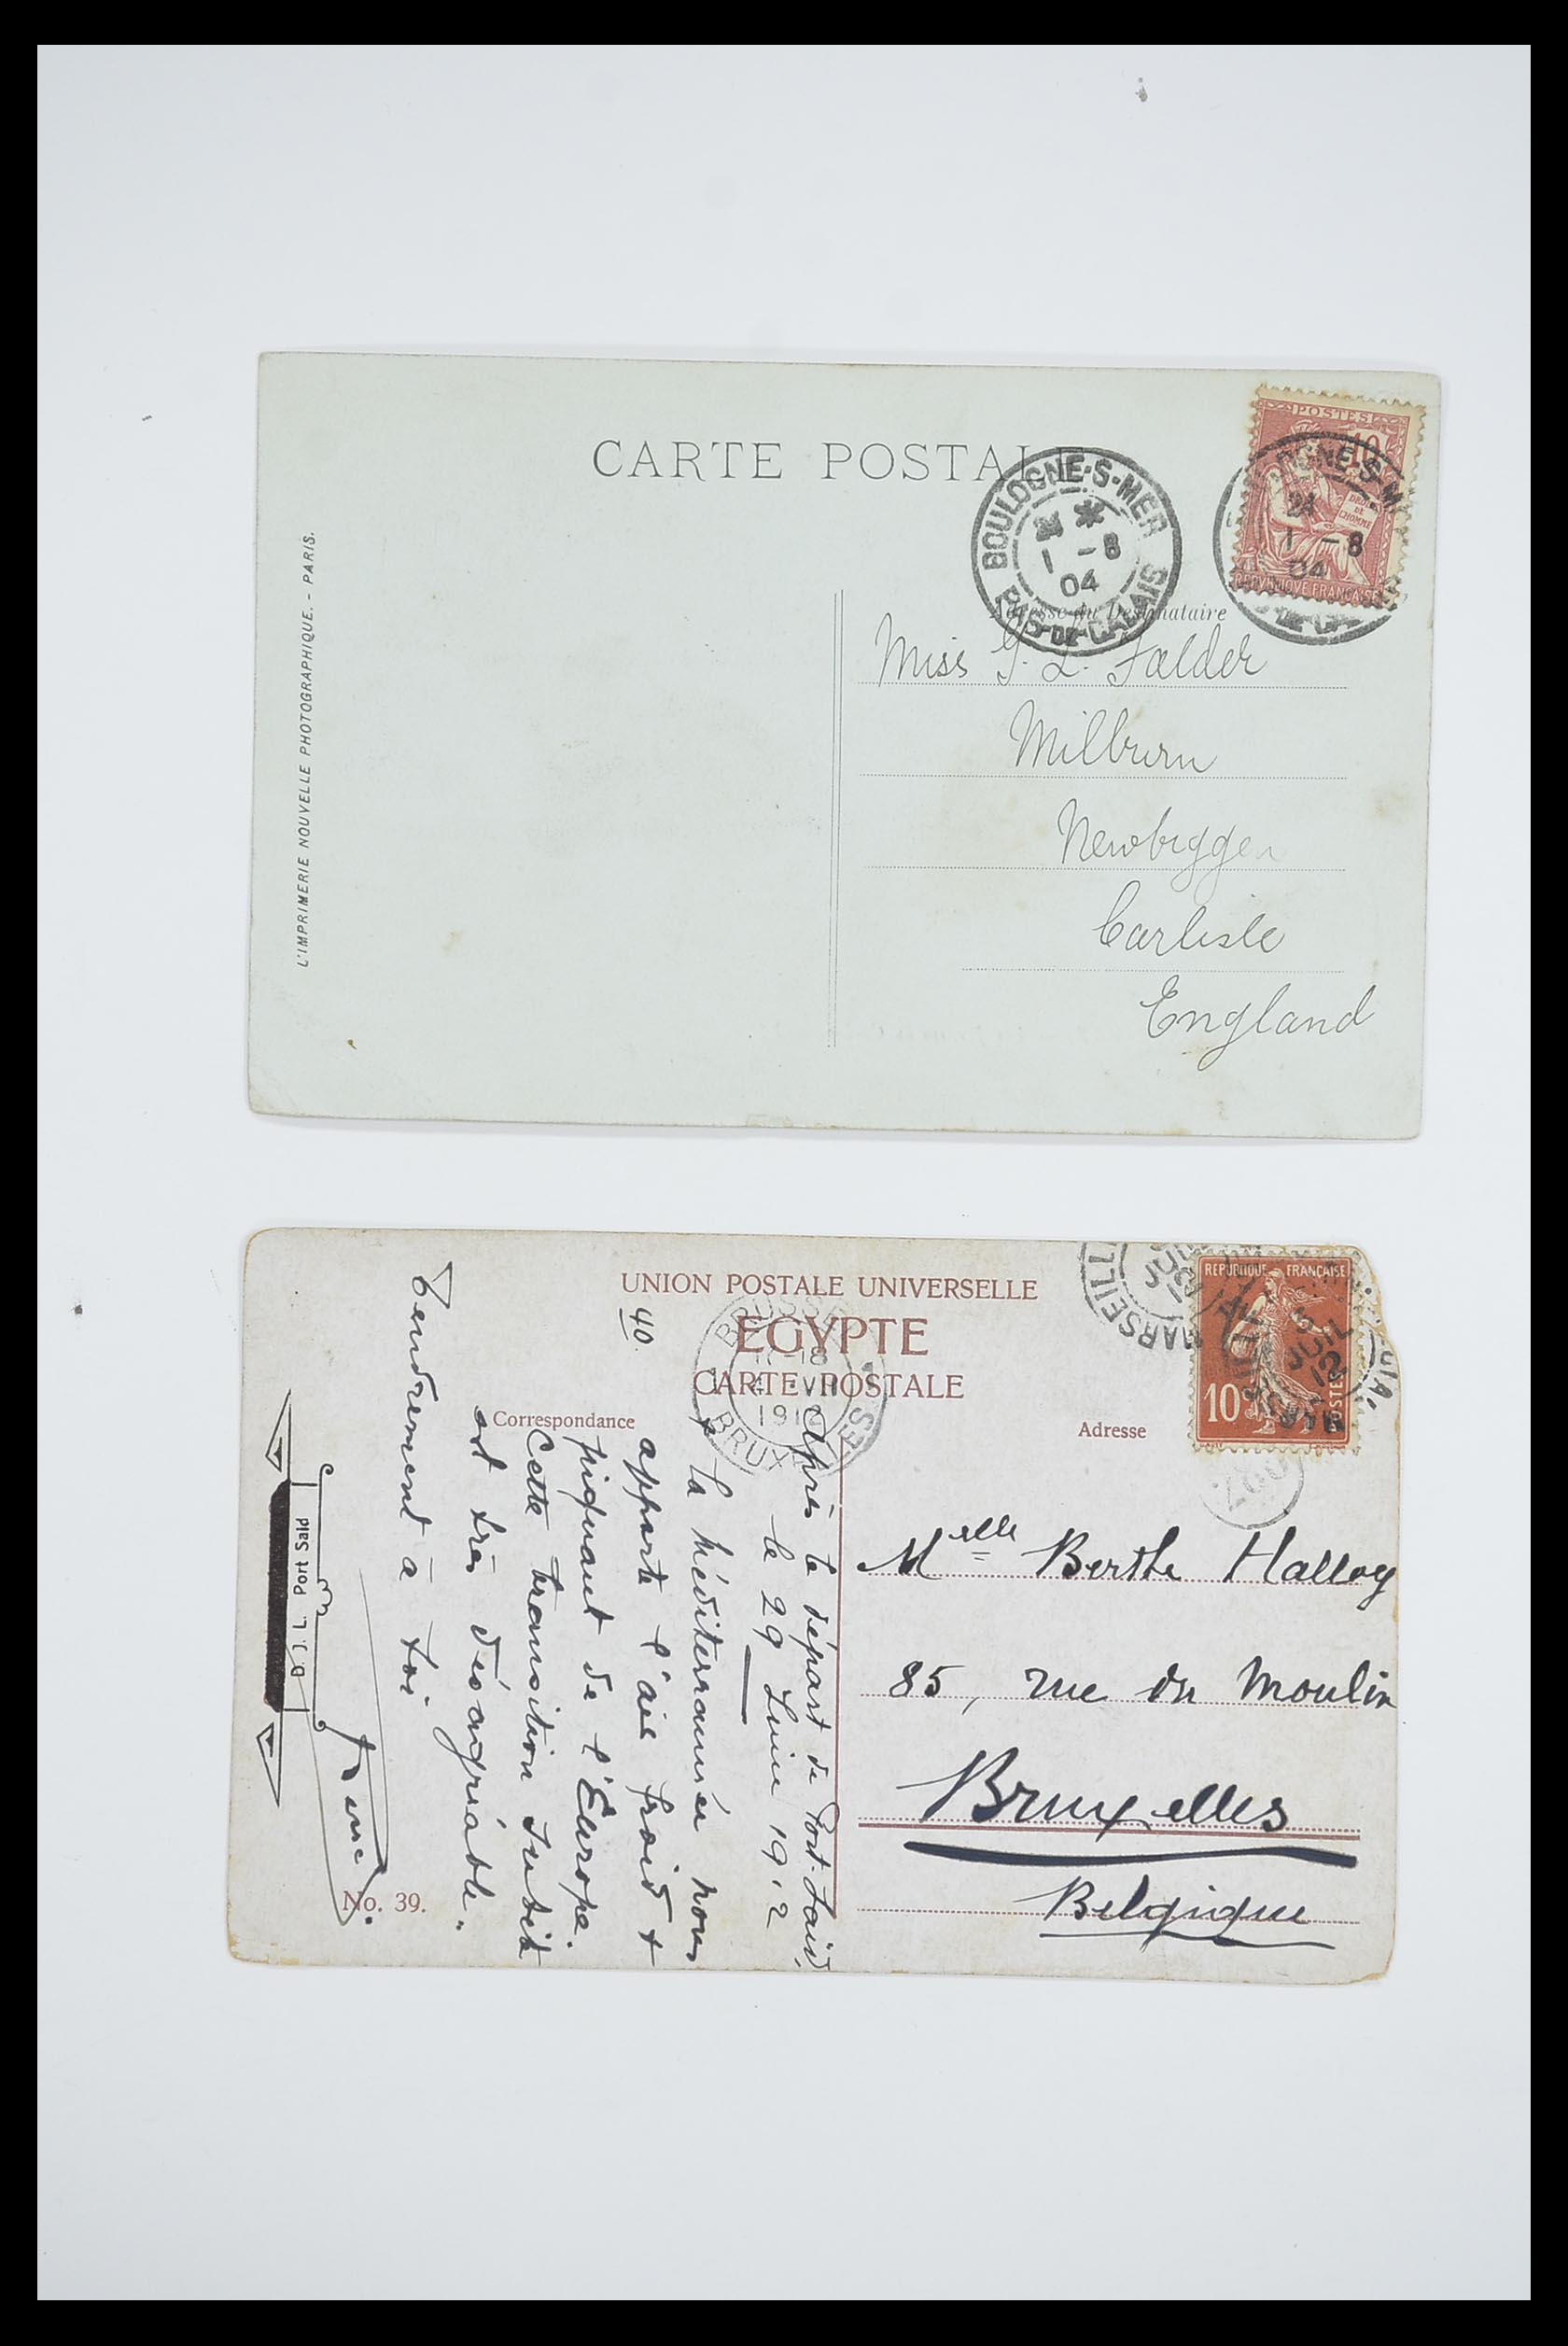 CARTE POSTALE
POSTES
10
DROITS
DE
L'HOMME
REPUBLIQUE FRANÇAISE
BOULOGNE-S-MER
1 -8
04
PAS-DE-CALAIS
1 -8
04
L'IMPRIMERIE NOUVELLE PHOTOGRAPHIQUE. - PARIS.
Adresse du Destinataire
Miss G. L. Falder
Milburn
Newbiggen
Carlisle
England
UNION POSTALE UNIVERSELLE
EGYPTE
CARTE POSTALE
Correspondance
Adresse
40
BRUSSEL
1912
BRUXELLES
MARSEILLE
REPUBLIQUE FRANÇAISE
10c
POSTES
JUIL
12
Après le départ de Port-Saïd,
le 29 Juin 1912
La Méditerrannée nous
apporte l'air froid +
piquant de l'Europe.
Cette transition subite
est très désagréable.
Tendrement à toi
D. J. L. Port Said
No. 39.
Melle Berthe Halloy
85, rue du Moulin
Bruxelles
Belgique